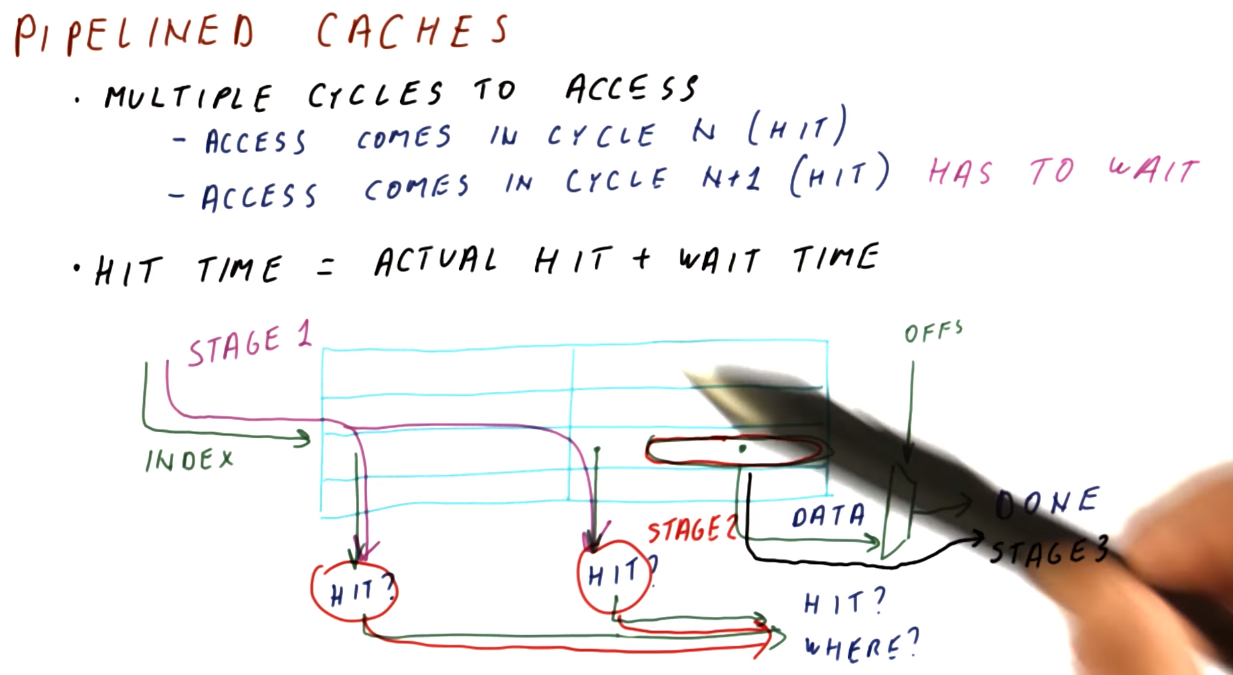 PIPELINED CACHES
· MULTIPLE CYCLES TO ACCESS
- ACCESS COMES IN CYCLE N (HIT)
- ACCESS COMES IN CYCLE N+1 (HIT) HAS TO WAIT
· HIT TIME = ACTUAL HIT + WAIT TIME
STAGE 1
OFFS
INDEX
STAGE 2
DATA
DONE
STAGE 3
HIT?
HIT?
HIT?
WHERE?